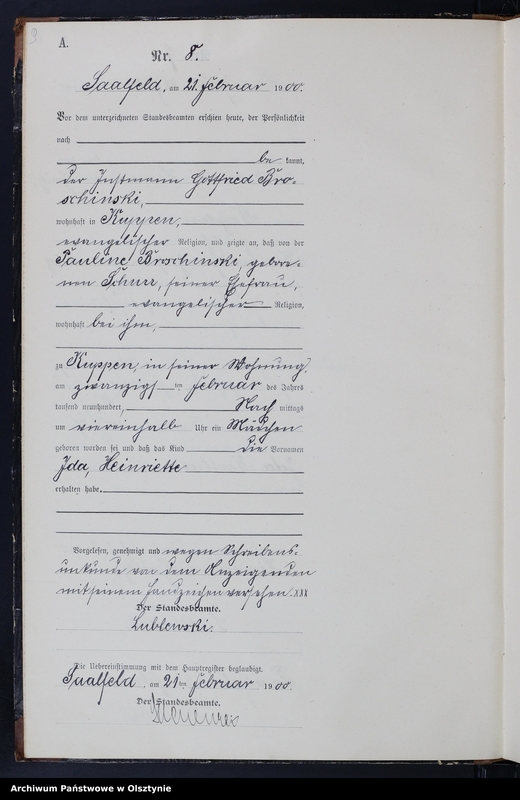 A.
Nr. 8.
Saalfeld, am 21. Februar 1900.
Vor dem unterzeichneten Standesbeamten erschien heute, der Persönlichkeit
nach
be kannt,
der Instmann Gottfried Bro-
schinski,
wohnhaft in Kuppen,
evangelischer Religion, und zeigte an, daß von der
Pauline Broschinski, gebore-
nen Schurr, seiner Ehefrau,
evangelischer Religion,
wohnhaft bei ihm,
zu Kuppen, in seiner Wohnung,
am zwanzigsten Februar des Jahres
tausend neunhundert, Nach mittags
um viereinhalb Uhr ein Mädchen
geboren worden sei und daß das Kind die Vornamen
Ida, Heinriette
erhalten habe.
Vorgelesen, genehmigt und wegen Schreibens-
unkunde von dem Anzeigenden
mit seinem Handzeichen versehen. XXX
Der Standesbeamte.
Lublewski.
Die Uebereinstimmung mit dem Hauptregister beglaubigt.
Saalfeld, am 21 ten Februar 1900.
Der Standesbeamte.
Archiwum Państwowe w Olsztynie